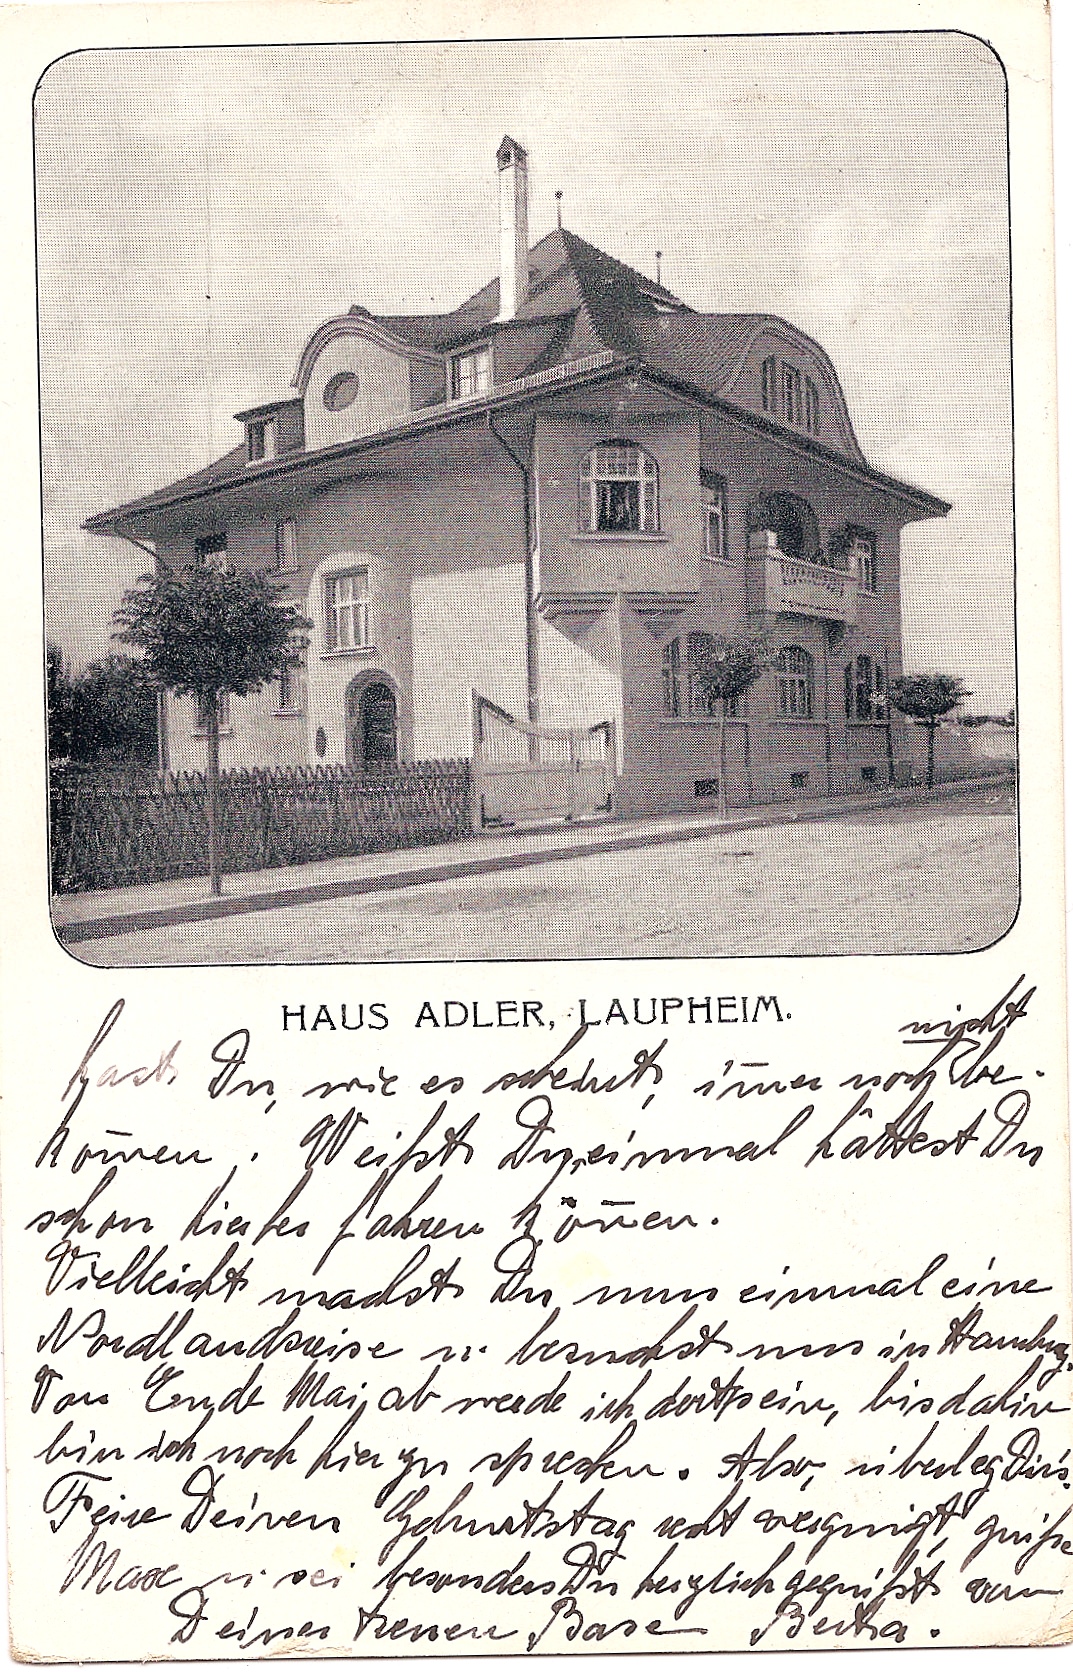 HAUS ADLER, LAUPHEIM.
nicht
hast Du, wie es scheint, im̅er noch be-
kom̅en. Weißt Du, einmal hättest Du
schon hierher fahren kön̅en.
Vielleicht machst Du nun einmal eine
Nordlandsreise u. besuchst uns in Hamburg.
Von Ende Mai ab werde ich dort sein, bis dahin
bin ich noch hier zu sprechen. Also, überleg Dir's.
Feire Deinen Geburtstag recht vergnügt, grüße
Max u. sei besonders Du herzlich gegrüßt von
Deiner treuen Base Berta.